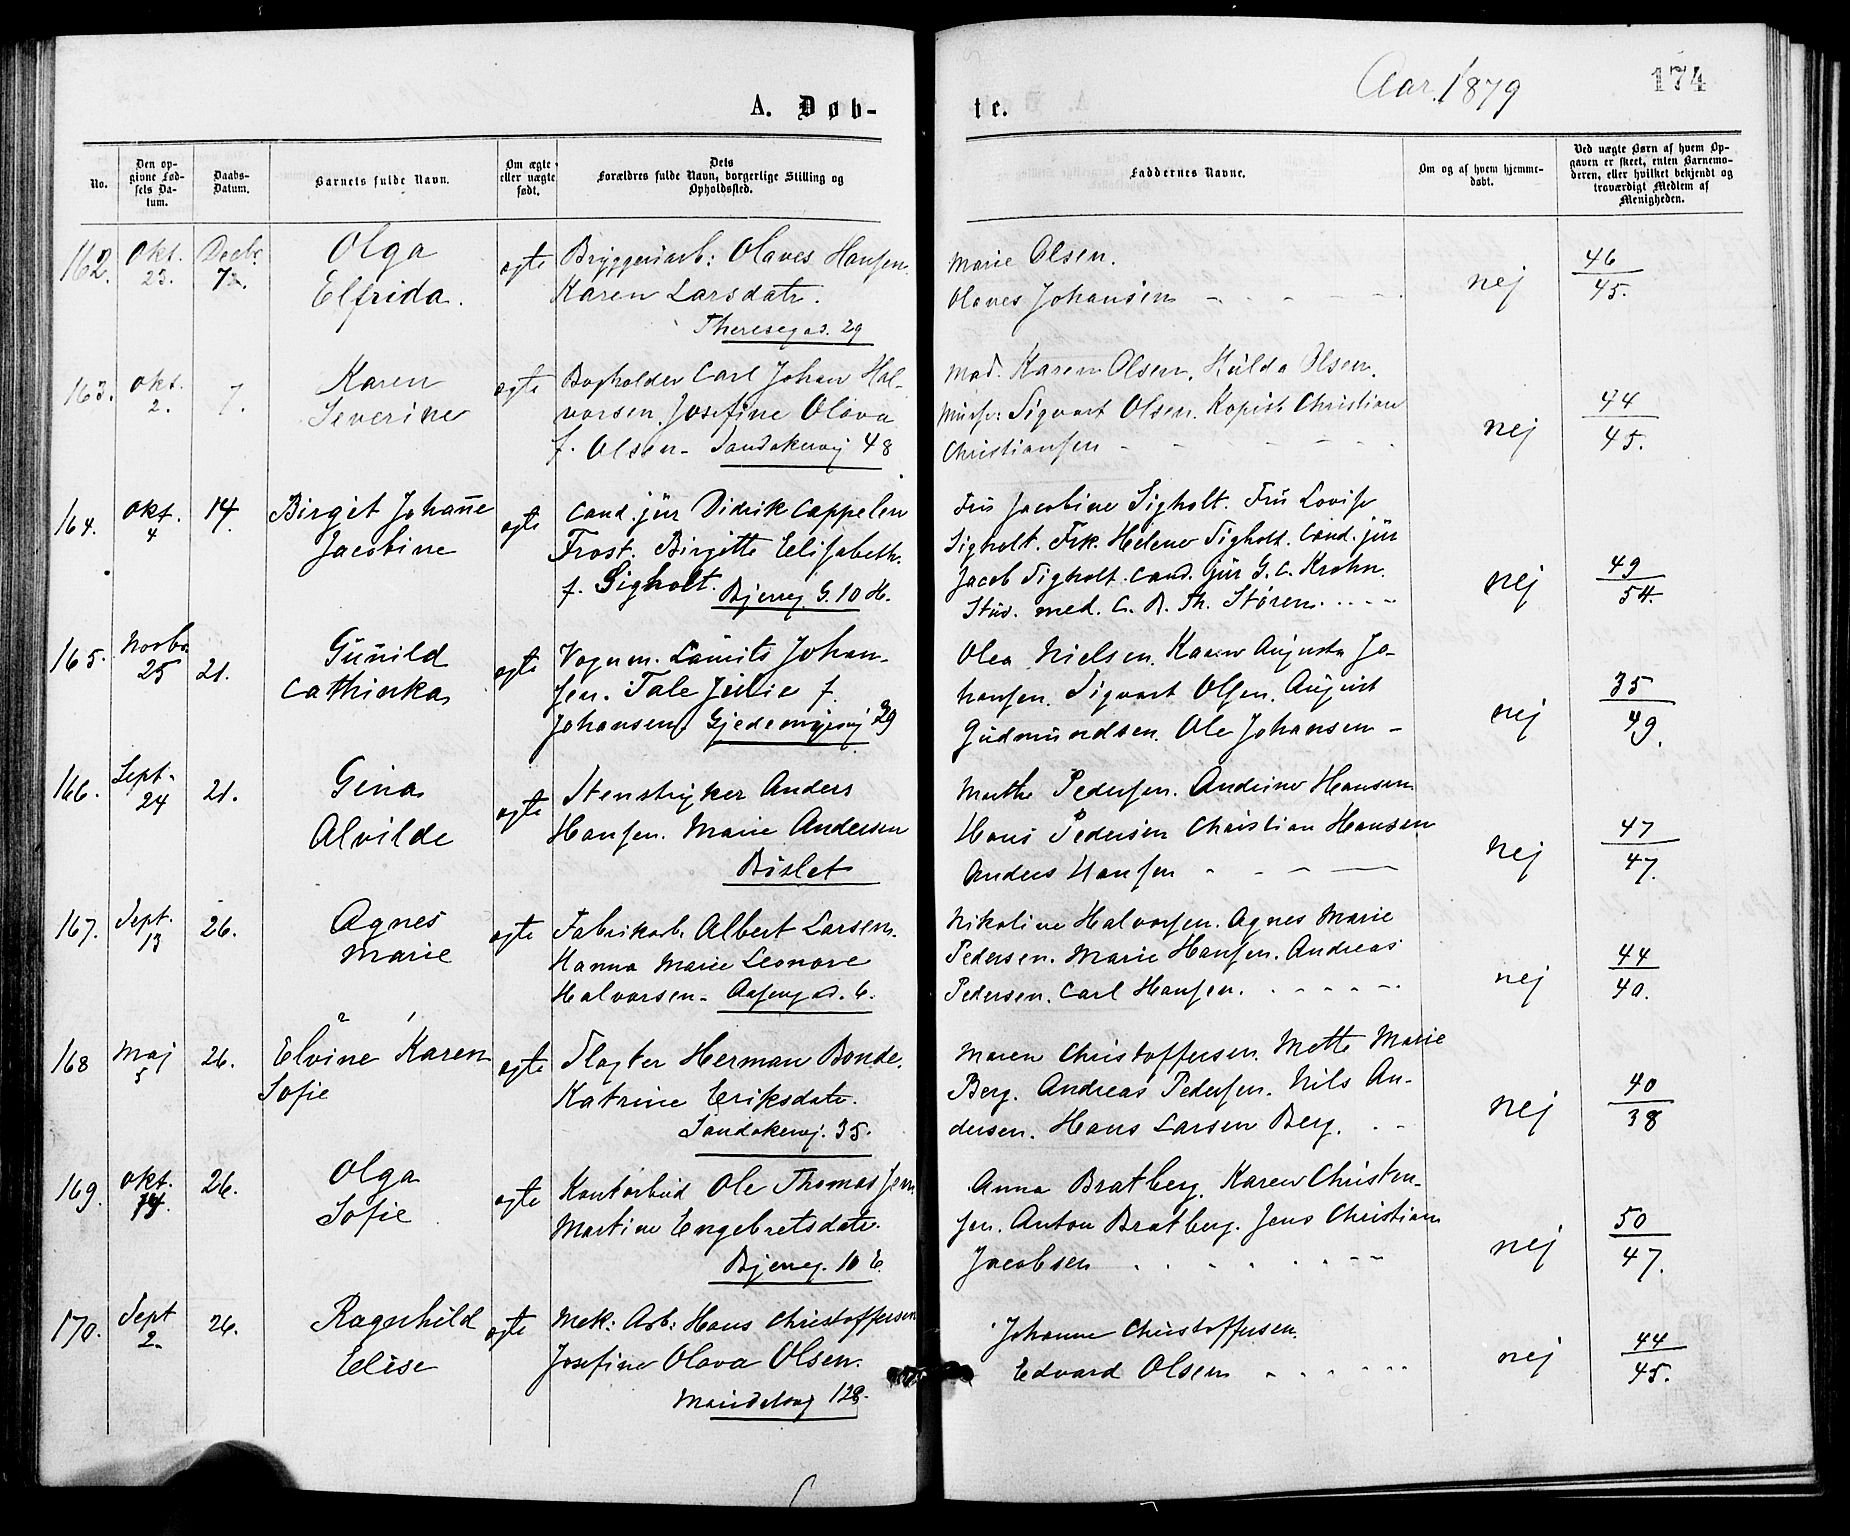 A. Døb-
te.
Aar. 1879
174
No.
Den op-
givne Fød-
sels Da-
tum.
Daabs-
Datum.
Barnets fulde Navn.
Om ægte
eller uægte
født.
Dets
Forældres fulde Navn, borgerlige Stilling og
Opholdssted.
Faddernes Navne.
Om og af hvem hjemme-
døbt.
Ved uægte Børn af hvem Op-
gaven er skeet, enten Barnemo-
deren, eller hvilket bekjendt og
troværdigt Medlem af
Menigheden.
162. Okt. 23. Decbr. 7. Olga
Elfrida.
ægte
Bryggeriarb: Olaves Hansen.
Karen Larsdatr.
Theresegad. 29
Marie Olsen.
Olaves Johansen
nej
46
45.
163. Okt. 2. 7. Karen
Severine
ægte
Bogholder Carl Johan Hal-
vorsen. Josefine Olava
f. Olsen - Sandakervej 48
Mad. Karen Olsen. Hulda Olsen.
Sigvart Olsen. Kopist Christian
Christiansen
nej
44
45.
164. Okt. 4 14. Birgit Johanne
Jacobine
ægte
Cand. jur Didrik Cappelen
Frost. Birgitte Elisabeth
f. Sigholt. Bjerreg. G. 10 H.
Fru Jacobine Sigholt. Fru Lovise
Sigholt. Frk. Helene Sigholt. Cand. jur
Jacob Sigholt. Cand. jur G. C. Krohn.
Stud. med. C. B. Th. Støren
nej
49
54.
165. Novbr 25 21. Gunild
Cathinka
ægte
Vognm. Lauits Johan-
sen. Tale Julie f.
Johansen. Gjedemyrsvej 29
Olea Nielsen. Karen Augusta Jo-
hansen. Sigvart Olsen. August
Gudmundsen. Ole Johansen -
nej
35
49.
166. Sept. 24 21. Gina
Alvilde
ægte
Stenstryker Anders
Hansen. Marie Andersen
Bislet
Marthe Pedersen. Andrine Hansen
Hans Pedersen Christian Hansen
Anders Hansen
nej
47
47.
167. Sept. 13 26. Agnes
Marie
ægte
Fabrikarb. Albert Larsen.
Hanna Marie Leonore
Halvorsen - Aasengd. 6.
Nikoline Halvorsen. Agnes Marie
Pedersen. Marie Hansen. Andreas
Pedersen. Carl Hansen.
nej
44
40.
168 Maj 5 26. Elvine Karen
Sofie
ægte
Slagter Herman Bonde.
Katrine Eriksdatr.
Sandakervej. 35.
Maren Christoffersen. Mette Marie
Berg. Andreas Pedersen. Nils An-
dersen. Hans Larsen Berg.
nej
40
38
169. Okt. 14. 26. Olga
Sofie
ægte
Kontorbud Ole Thomas
Martine Engebretsdatr.
Bjerreg. 10 E.
Anna Bratberg. Karen Christen-
sen. Anton Bratberg. Jens Christian
Jacobsen
nej
50
47.
170. Sept 2. 26. Ragnhild
Elise
ægte
Mek: Arb: Hans Christoffersen
Josefine Olava Olsen.
Maridalsvej 128.
Johanne Christoffersen.
Edvard Olsen
nej
44
45.